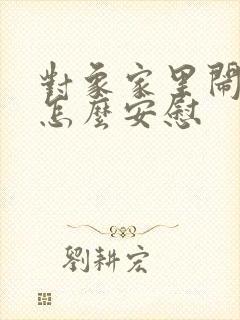 對象家里鬧
怎麼安慰
劉耕宏